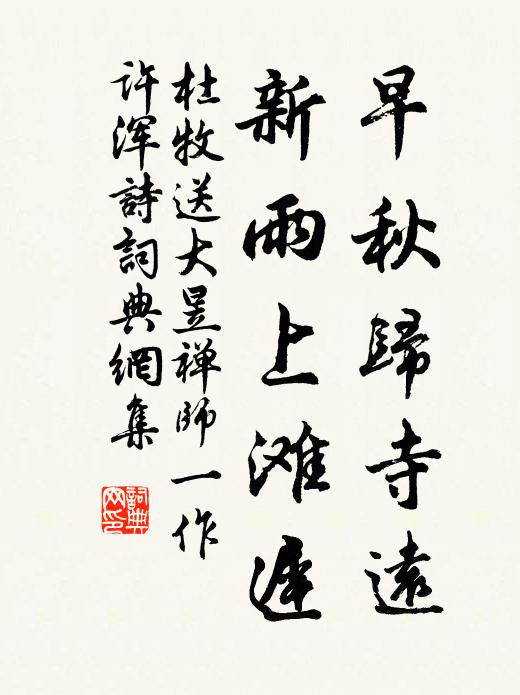 早秋歸寺遠
新雨上滩遲
杜牧送大昱禅師一作
许渾詩詞典網集
詞典网印